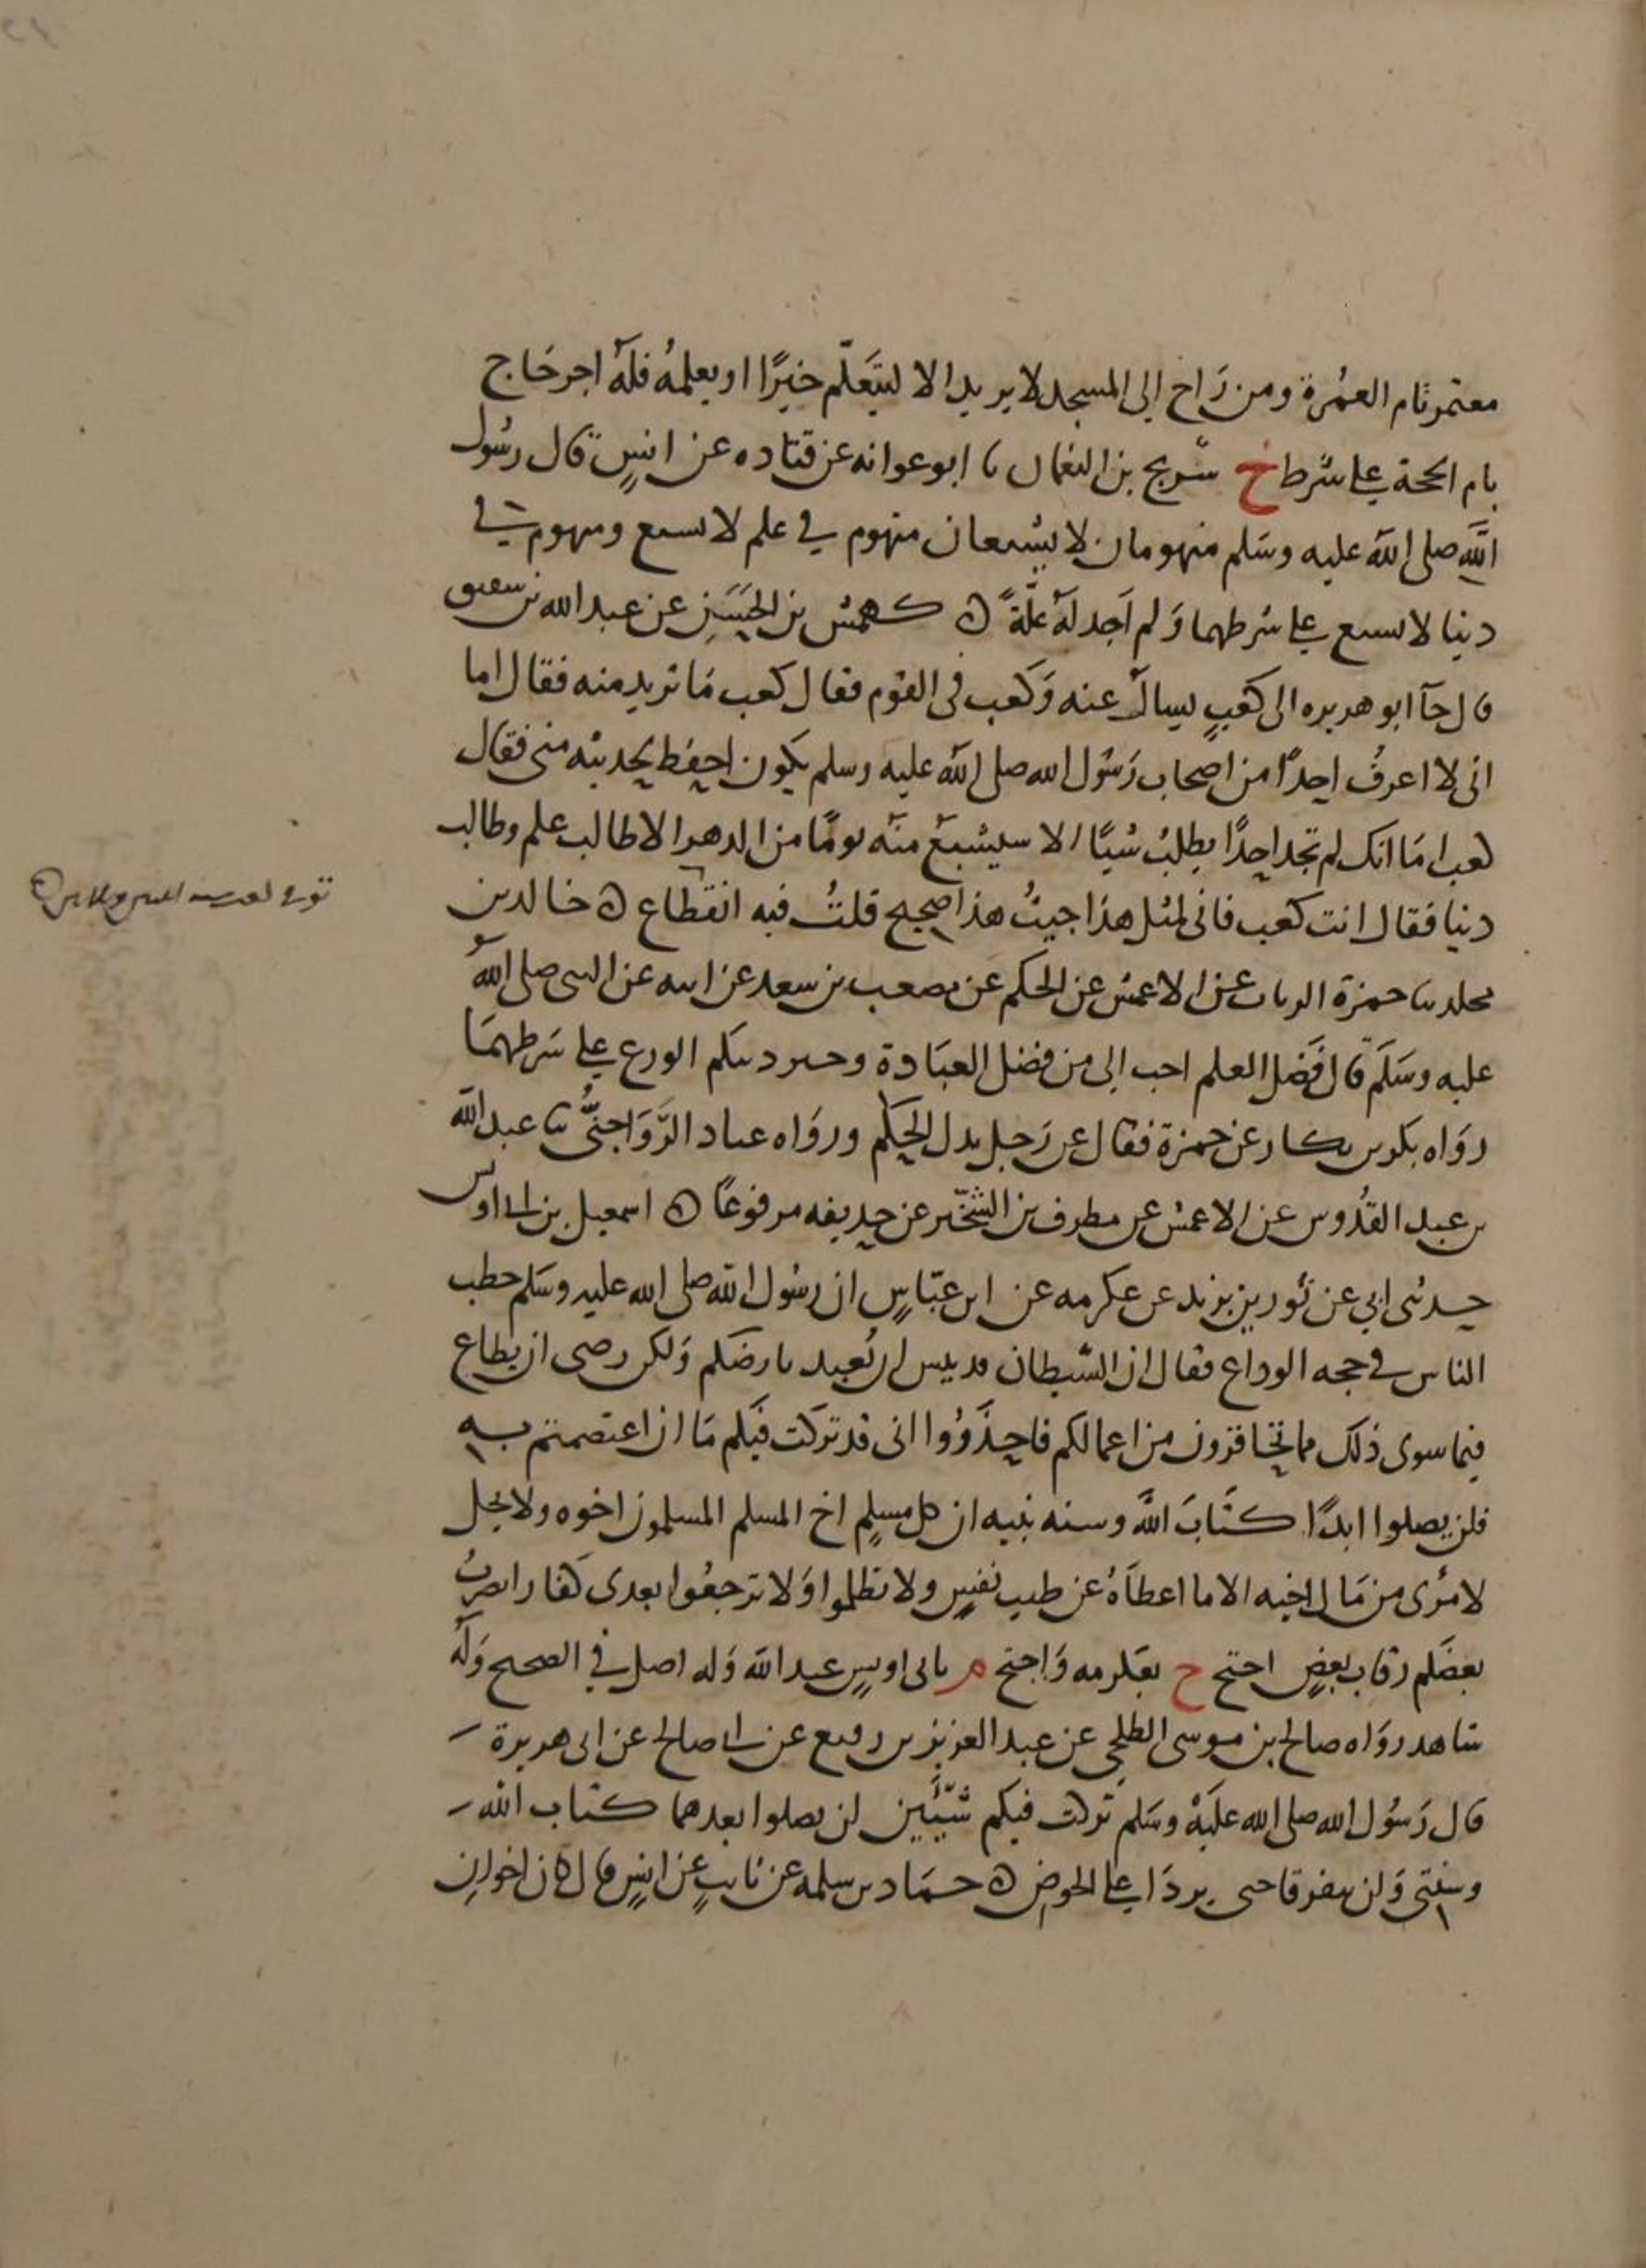 معتمر تام العُمْرة ومن رَاح الى المسجد لا يريد الا ليتَعلّم خيْرًا او يعلمُه فلَهُ اجر حَاج
تام الحجة على شرط خ سُريج بن النعمان نا ابو عوانه عن قتاده عن انسٍ قال رسُول
اللَّهِ صلى الله عليه وسَلم منهومان لا يشبعان منهوم في علم لا يشبع ومنهوم في
دنيا لا يشبع على شرطهما وَلم اَجد لَهُ علّةً ه كهمس بن الحَسَنِ عن عبد الله بن شقيق
قال جآ ابو هريره الى كعْبٍ يسال عنه وَكعب في القوم فقال كعب مَا تريد منه فقال اما
انى لا اعرفُ احدًا من اصحاب رَسُول الله صلى الله عليه وسلم يكون احفظ لحديثه منى فقال
كعب اما انك لم تجد احدًا يطلبُ شيًا الا سيشبعُ منه يومًا من الدهر الا طالب علم وطالب
دنيا فقال انت كعب فانى لمثل هذا جيتُ هذا صحيح قلتُ فيه انقطاع ه خالد بن
مخلد نا حمزة الزيات عن الاعمش عن الحكم عن مصعب بن سعد عن ابيه عن النبى صلى الله
عليه وسَلَم قال فَضْل العلم احب الى من فضل العبَادة وخير دينكم الورع على شَرطهمَا
روَاه بكر بن بكار عن حمزة فقال عن رَجل بدل الحَكم وروَاه عباد الرَّوَاجنىُّ نا عبد الله
بن عبد القُدُّوس عن الاعمش عن مطرف بن الشخّير عن حذيفه مرفوعًا ه اسمعيل بن ابى اويس
حدثنى ابي عن ثور بن يزيد عن عكرمه عن ابن عبّاسٍ ان رسُول الله صلى الله عليه وسَلم خطب
الناس في حجه الوداع فقال ان الشيطان قد يئس ان يُعبد بارضكم وَلكن رضى ان يطاع
فيما سوى ذلك مما تحاقرون من اعمالكم فاحذَرُوا انى قد تركت فيكم مَا ان اعتصمتم به
فلن تضلوا ابدًا كتَابَ اللهِ وسنه نبيه ان كل مسلمٍ اخ المسلم المسلمون اخوه ولا يحل
لامرُى من مَال اخيه الا ما اعطاهُ عن طيب نفسٍ ولا تظلموا وَلا ترجعُوا بعدى كفارا يضربُ
بعضكم رقاب بعضٍ احتج خ بعكرمه وَاحتج م بابى اويسٍ عبد الله وَله اصل في الصحيح وَلَهُ
شاهد روَاه صالح بن موسى الطلحى عن عبد العزيز بن رفيع عن ابى صالح عن ابى هريرة
قال رَسُول الله صلى الله علَيهْ وسَلم تركت فيكم شَيْئَين لن تضلوا بعدهما كتاب الله
وسنتى وَلن يتفرقا حتى يردَا على الحوض ه حمَاد بن سلمه عن ثابتٍ عن انسٍ قال كان اخوانِ